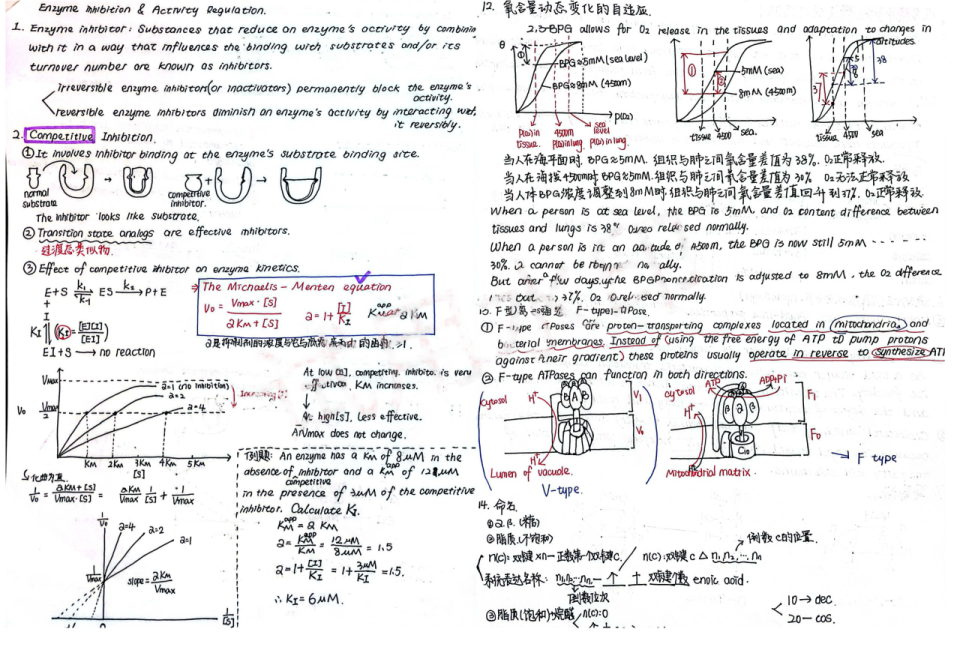 Enzyme Inhibition & Activity Regulation.
1. Enzyme inhibitor: Substances that reduce an enzyme's activity by combining
with it in a way that influences the binding with substrates and/or its
turnover number are known as inhibitors.
irreversible enzyme inhibitors(or inactivators) permanently block the enzyme's
activity.
reversible enzyme inhibitors diminish an enzyme's activity by interacting
it reversibly.
2. Competitive Inhibition.
① It involves inhibitor binding at the enzyme's substrate binding site.
normal
substrate
competitive
inhibitor.
The inhibitor looks like substrate.
② Transition state analogs are effective inhibitors.
过渡态类似物.
③ Effect of competitive inhibitor on enzyme kinetics.
E+S k₁ k-1 ES k₂ → P+E
+
I
KI (KI=[E][I]/[EI])
EI+S → no reaction
→ The Michaelis-Menten equation
V₀ = Vmax·[S] / (2KM+[S])
2 = 1+ [I]/KI
KM app = 2KM
Vmax
V₀ Vmax/2
2=1 (no inhibition)
2=2
2=4
Increasing
KM 2KM 3KM 4KM 5KM
[S]
At low [S], competitive inhibitor is very
effective, KM increases.
At high[S], Less effective.
Vmax does not change.
1/V₀ = (2KM+[S])/(Vmax·[S]) = 2KM/Vmax · 1/[S] + 1/Vmax
1/V₀
2=4
2=2
2=1
1/Vmax
slope = 2KM/Vmax
0
1/[S]
例题: An enzyme has a KM of 8μM in the
absence of inhibitor and a KM app of 12μM
competitive
in the presence of 3μM of the competitive
inhibitor. Calculate KI.
KM app = 2 KM
2= KM app/KM = 12μM/8μM = 1.5
2=1+[I]/KI = 1+ 3μM/KI =1.5.
∴ KI=6μM.
12. 氧含量动态变化的自适应.
2,3-BPG allows for O₂ release in the tissues and adaptation to changes in
altitudes.
θ
①
BPG≈5mM (sea level)
BPG≈8mM (4500m)
p(O₂)
p(O₂)in
tissue.
4500m
p(O₂)in lung.
sea
level
p(O₂)in lung.
①
②
5mM (sea)
8mM (4500m)
tissue 4500 sea.
37
38
tissue 4500 sea
当人在海平面时, BPG≈5mM. 组织与肺之间氧含量差值为38%. O₂正常释放.
当人在海拔4500m时 BPG≈5mM. 组织与肺之间氧含量差值为30% O₂无法正常释放
当人体BPG浓度调整到8mM时 组织与肺之间氧含量差值回升到37%. O₂正常释放.
When a person is at sea level, the BPG is 5mM, and O₂ content difference between
tissues and lungs is 38% released normally.
When a person is in an 4500m, the BPG is now still 5mM ------
30%. O₂ cannot be
But after few days, the BPG concentration is adjusted to 8mM, the O₂ difference
37%. O₂ normally.
F-type ATPase.
① F-type ATPases are proton-transporting complexes located in (mitochondria) and
bacterial membranes. Instead of (using the free energy of ATP to pump protons
against their gradient) these proteins usually operate in reverse to synthesize ATP
② F-type ATPases can function in both directions.
cytosol
H⁺
B A B
V₁
V₀
H⁺
Lumen of vacuole.
V-type.
cytosol
ATP
ADP+Pi
H⁺
β 2 β
F₁
F₀
C₁₀
H⁺
Mitochondrial matrix.
→ F type
14. 命名
①2.β.(糖)
②脂质(不饱和)
n(c):双键 n(c):双键c △ n₁,n₂,...nₙ
倒数c的位置.
系统表达名称: n₁,n₂...nₙ- 个 十 双键个数 enoic acid.
③脂质(饱和)→烷酸 / n(c):0
10→dec
20—cos.